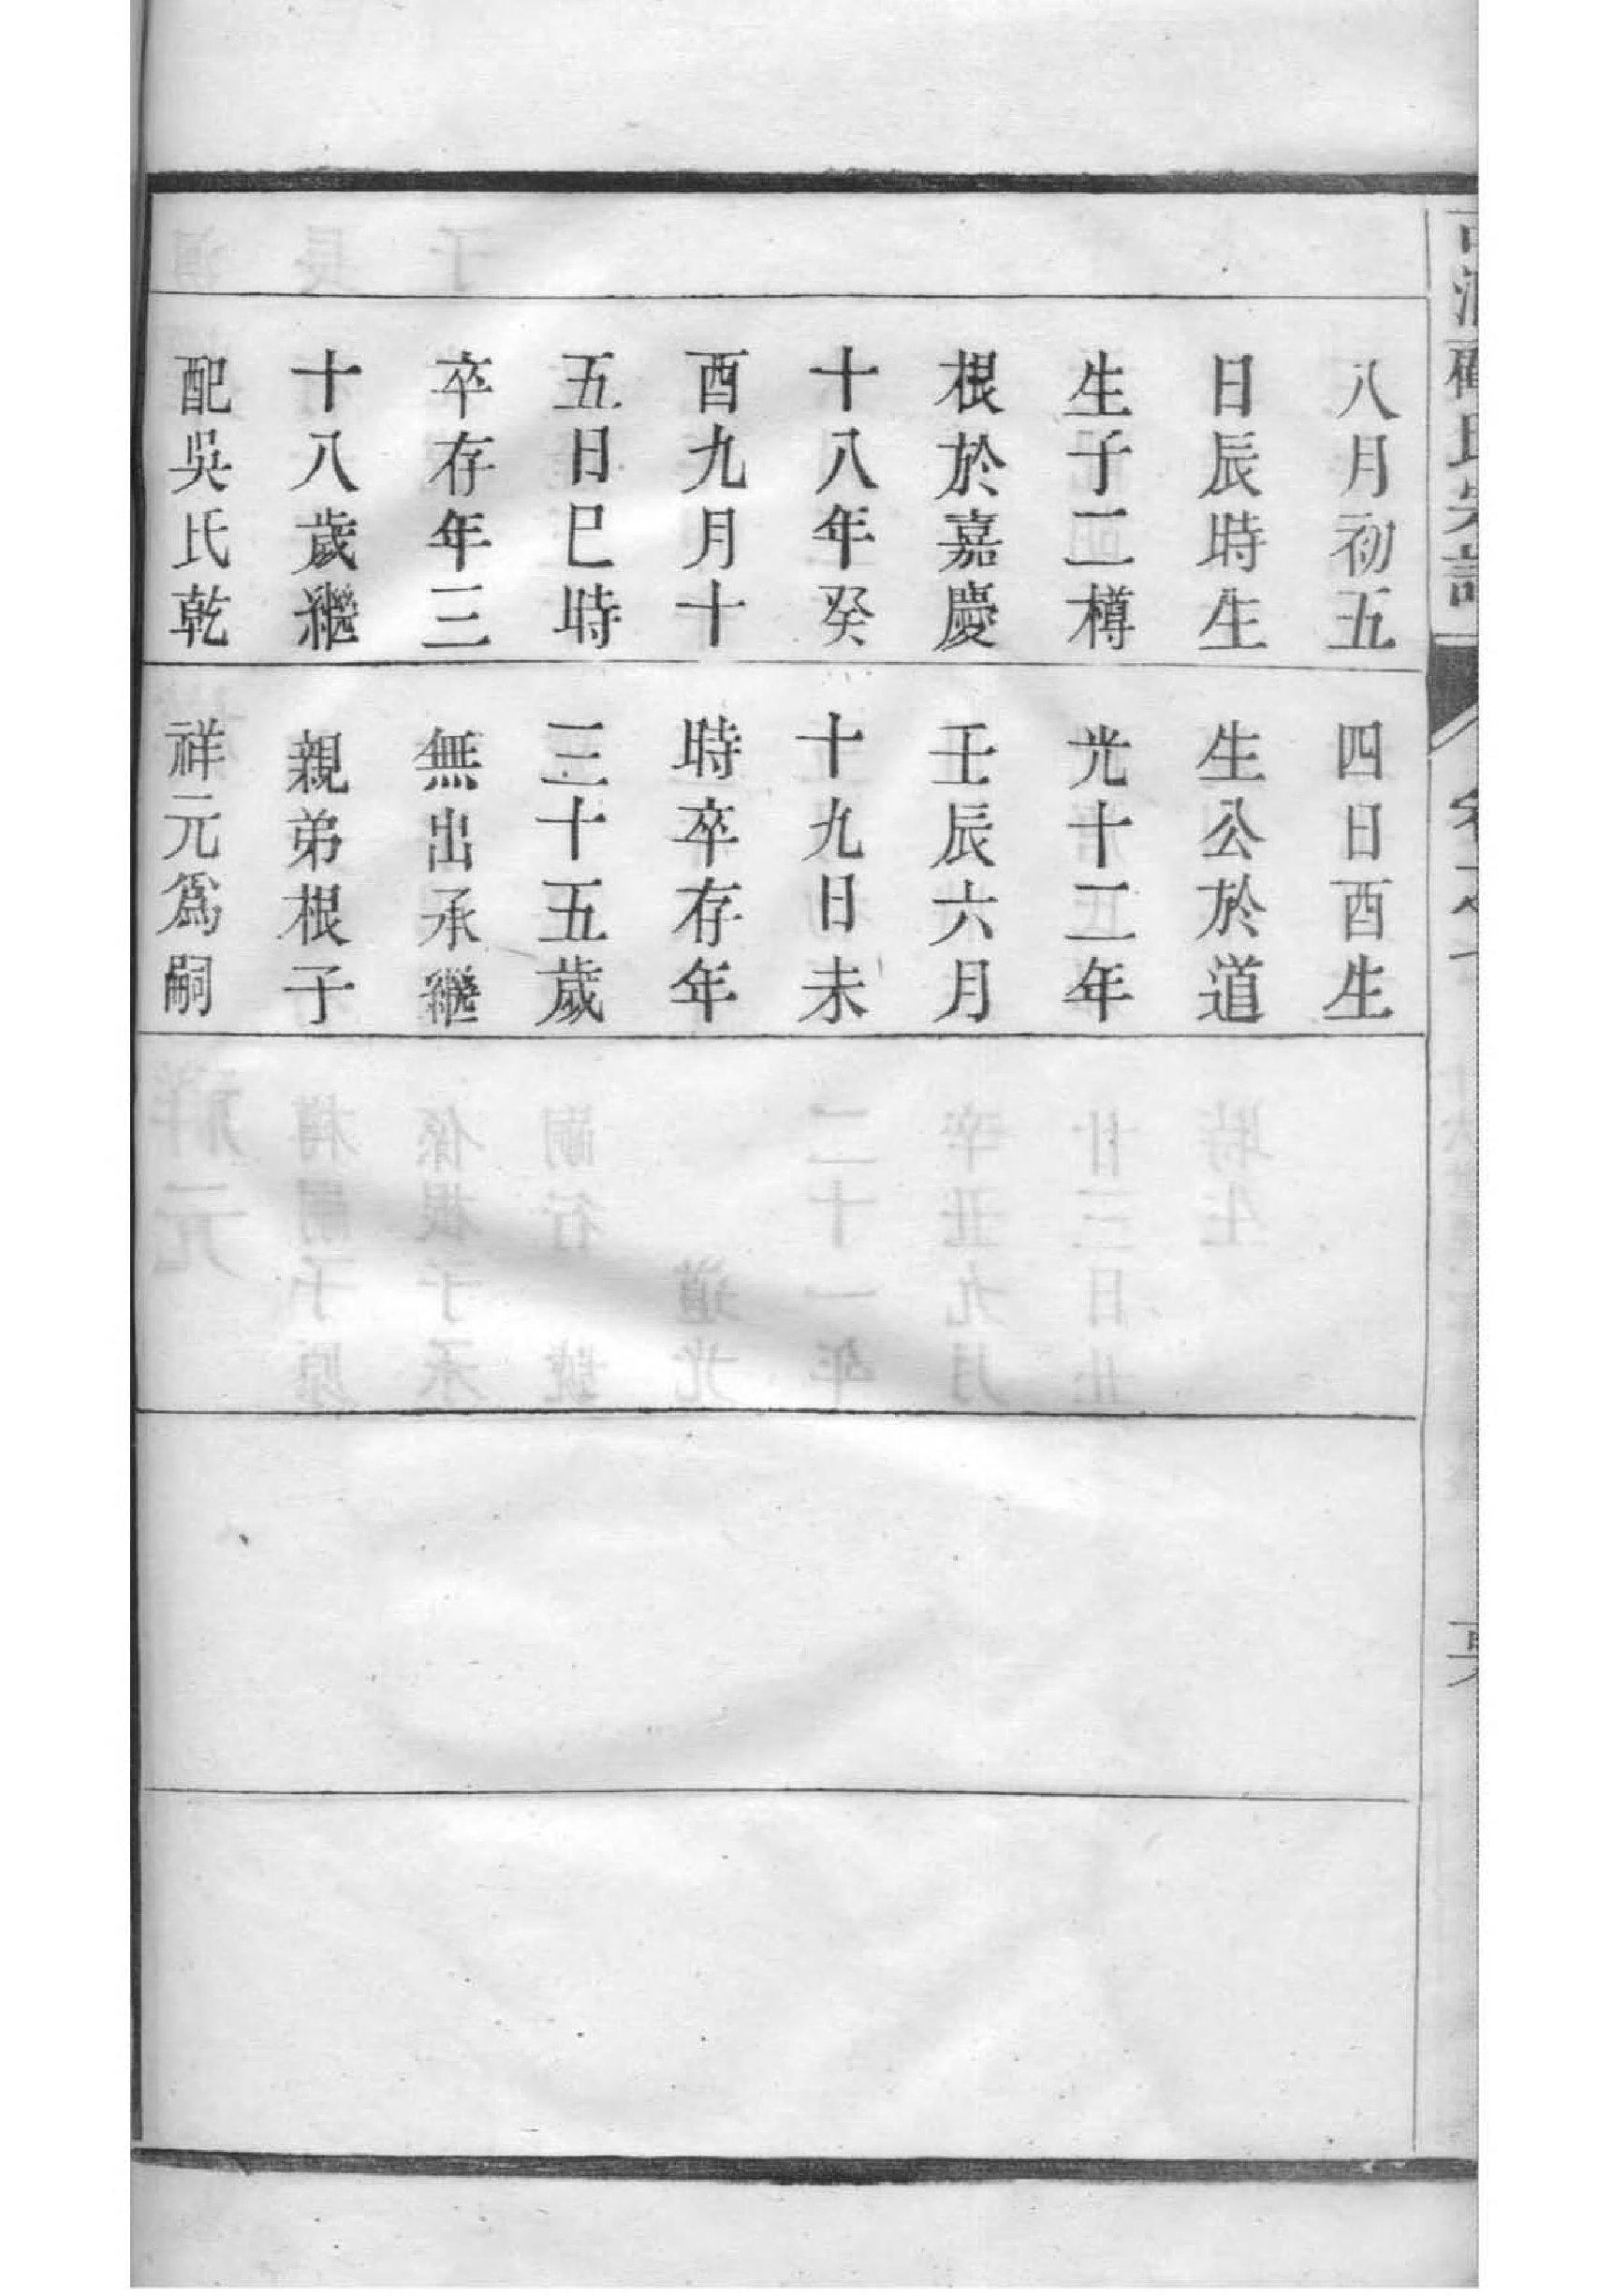 八月初五
日辰時生
生子二樽
根於嘉慶
十八年癸
酉九月十
五日巳時
卒存年三
十八歲繼
配吳氏乾
四日酉生
生公於道
光十二年
壬辰六月
十九日未
時卒存年
三十五歲
無出承繼
親弟根子
祥元爲嗣